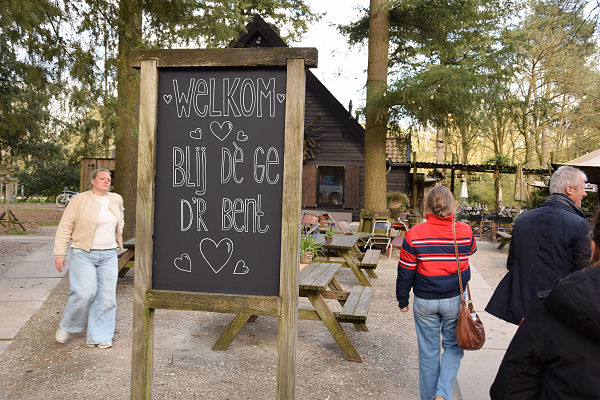 WELKOM
BLIJ DÈ GE
D'R BENT